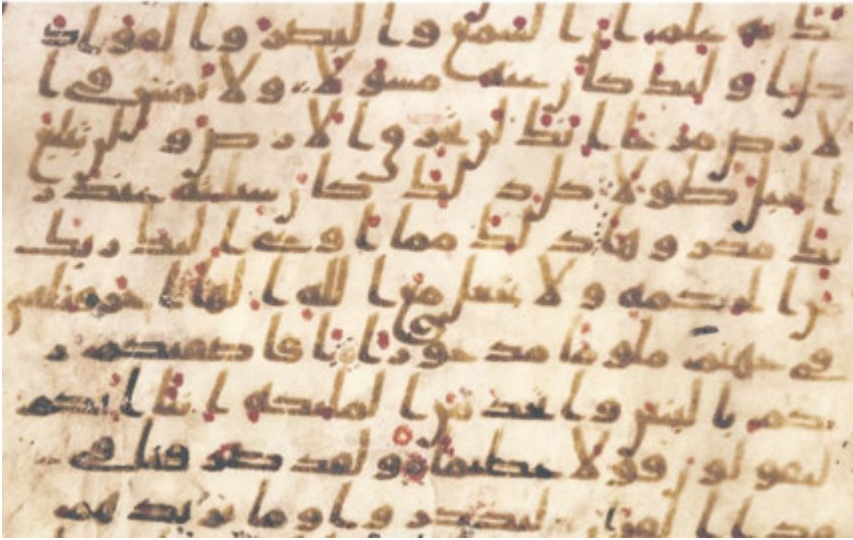 لك به علم ان السمع و البصر و الفواد
كل ا و لئك كان عنه مسولا و لا تمش في ا
لارض مرحا انك لن تخرق الارض و لن تبلغ
الجبل طولا كل ذلك كان سيئه عند ر
بك مكروها ذلك مما اوحى اليك ربك
من الحكمه و لا تجعل مع الله الها اخر فتلقى
في جهنم ملوما مدحورا افاصفيكم ر
بكم بالبنين و اتخذ من الملئكه انثا انكم
لتقولون قولا عظيما و لقد صرفنا في
هذا القران ليذكروا و ما يزيدهم